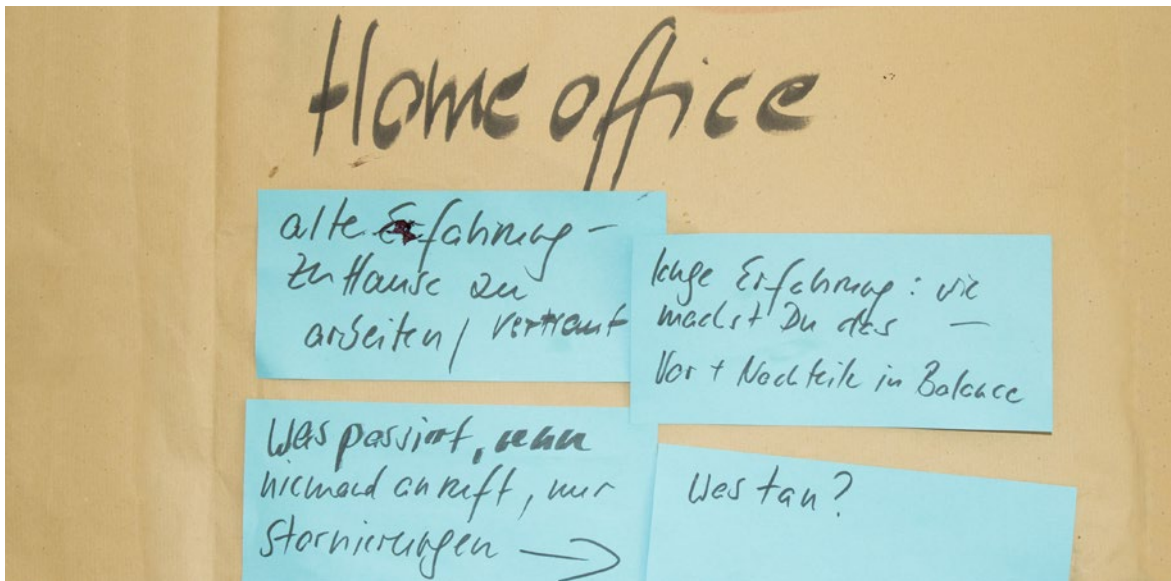 Home office
alte Erfahrung –
zu Hause zu
arbeiten / vertraut
lange Erfahrung: wie
machst Du das –
Vor + Nachteile in Balance
Was passiert, wenn
niemand anruft, nur
Stornierungen →
Was tun?